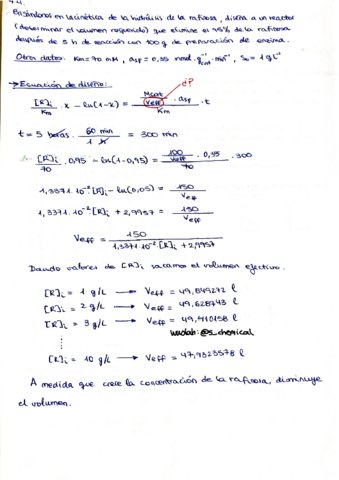 4.4.
Basándonos en la cinética de la hidrólisis de la rafinosa, diseña a un reactor
(determinar el volumen requerido) que elimine el 95% de la rafinosa
después de 5 h de reacción con 100 g de preparación de enzima.
Otros datos: Km = 70 mM, asp = 0,35 mmol·g⁻¹cat·min⁻¹, S₀ = 1 g L⁻¹
→ Ecuación de diseño: ¿?
[R]i/Km · x - ln(1-x) = (Mcat/Veff · asp)/Km · t
t = 5 horas · 60 min/1 h = 300 min
[R]i/70 · 0,95 - ln(1-0,95) = (100/Veff · 0,35)/70 · 300
1,3571·10⁻² [R]i - ln(0,05) = 150/Veff
1,3571·10⁻² [R]i + 2,9957 = 150/Veff
Veff = 150/(1,3571·10⁻² [R]i + 2,9957)
Dando valores de [R]i sacamos el volumen efectivo.
[R]i = 1 g/L → Veff = 49,849272 l
[R]i = 2 g/L → Veff = 49,628743 l
[R]i = 3 g/L → Veff = 49,410158 l
wuolah: @S_chemical
⋮
[R]i = 10 g/L → Veff = 47,9323578 l
A medida que crece la concentración de la rafinosa, disminuye
el volumen.